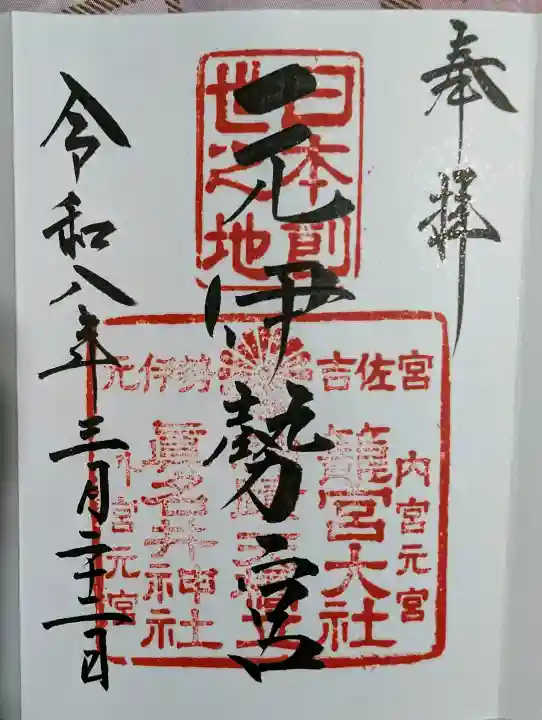 奉拝
日本創
世之地
元伊勢宮
元伊勢 吉佐宮
内宮元宮
籠宮大社
眞名井神社
外宮元宮
令和八年三月二十一日